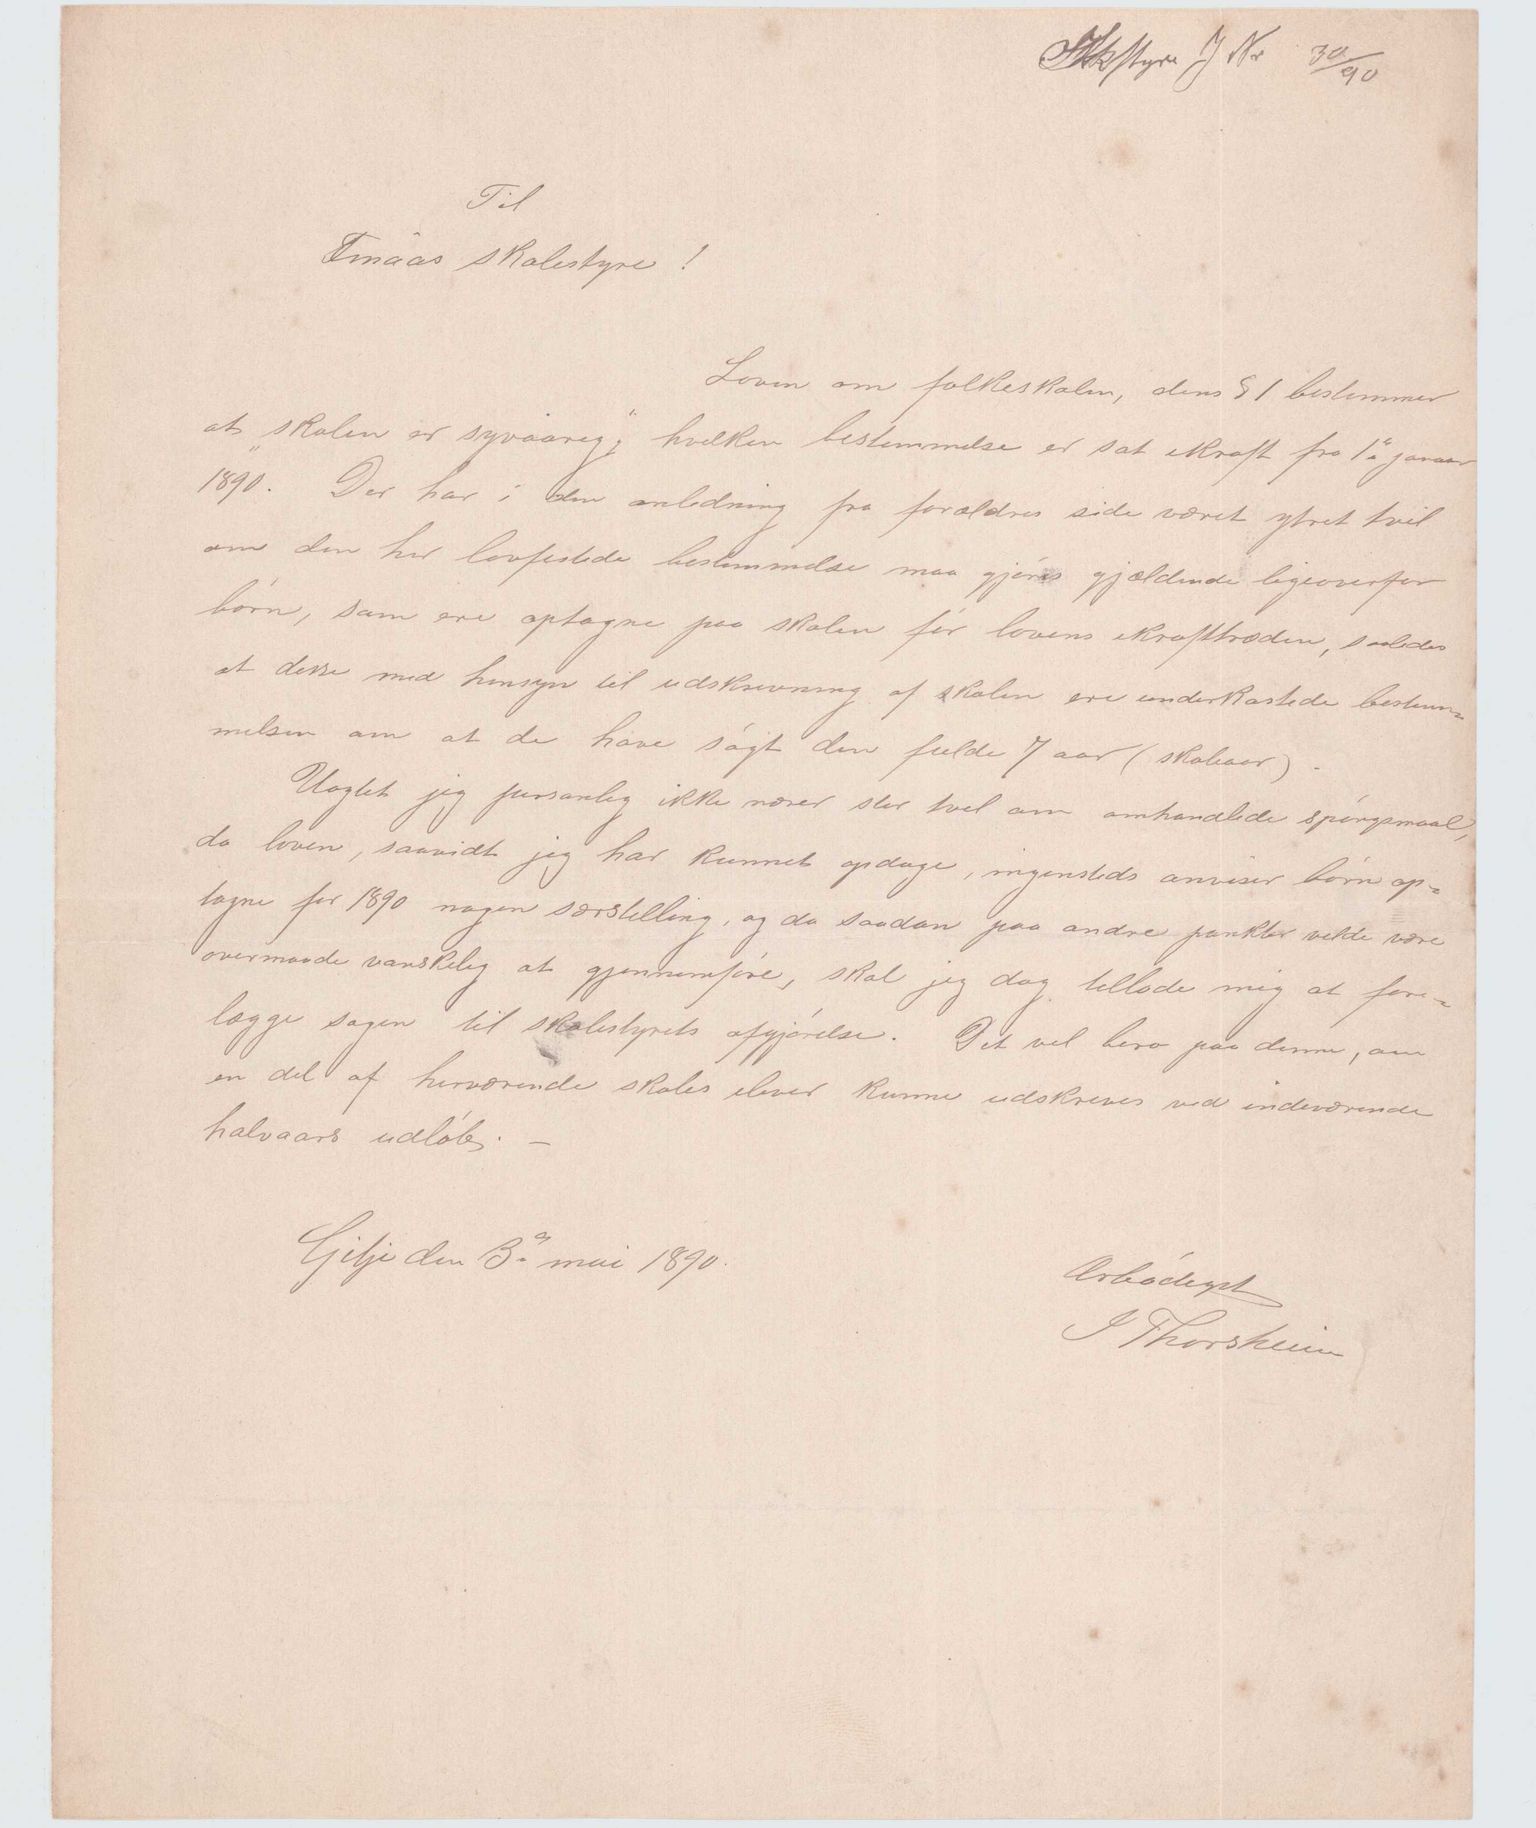 Skstyre J Nr 30/90
Til
Finaas skolestyre!
Loven om folkeskolen, dens § 1 bestemmer
at "skolen er syvaarig;" hvilken bestemmelse er sat ikraft fra 1ste januar
1890. Der har i den anledning fra forældres side været ytret tvil
om den her lovfestede bestemmelse maa gjøres gjældende ligeoverfor
børn, som ere optagne paa skolen før lovens ikrafttræden, saaledes
at disse med hensyn til udskrivning af skolen ere underkastede bestem-
melsen om at de have søgt den fulde 7 aar (skoleaar).
Uagtet jeg personlig ikke nærer stor tvil om omhandlede spørgsmaal,
da loven, saavidt jeg har kunnet opdage, ingensteds anviser børn op-
tagne før 1890 nogen særstilling, og da saadan paa andre punkter vilde være
overmaade vanskelig at gjennemføre, skal jeg dog tillade mig at fore-
lægge sagen til skolestyrets afgjørelse. Det vil bero paa denne, om
en del af herværende skoles elever kunne udskrives ved indeværende
halvaars udløb. —
Gilje den 3die mai 1890.
Ærbødigst
J Thorsheim